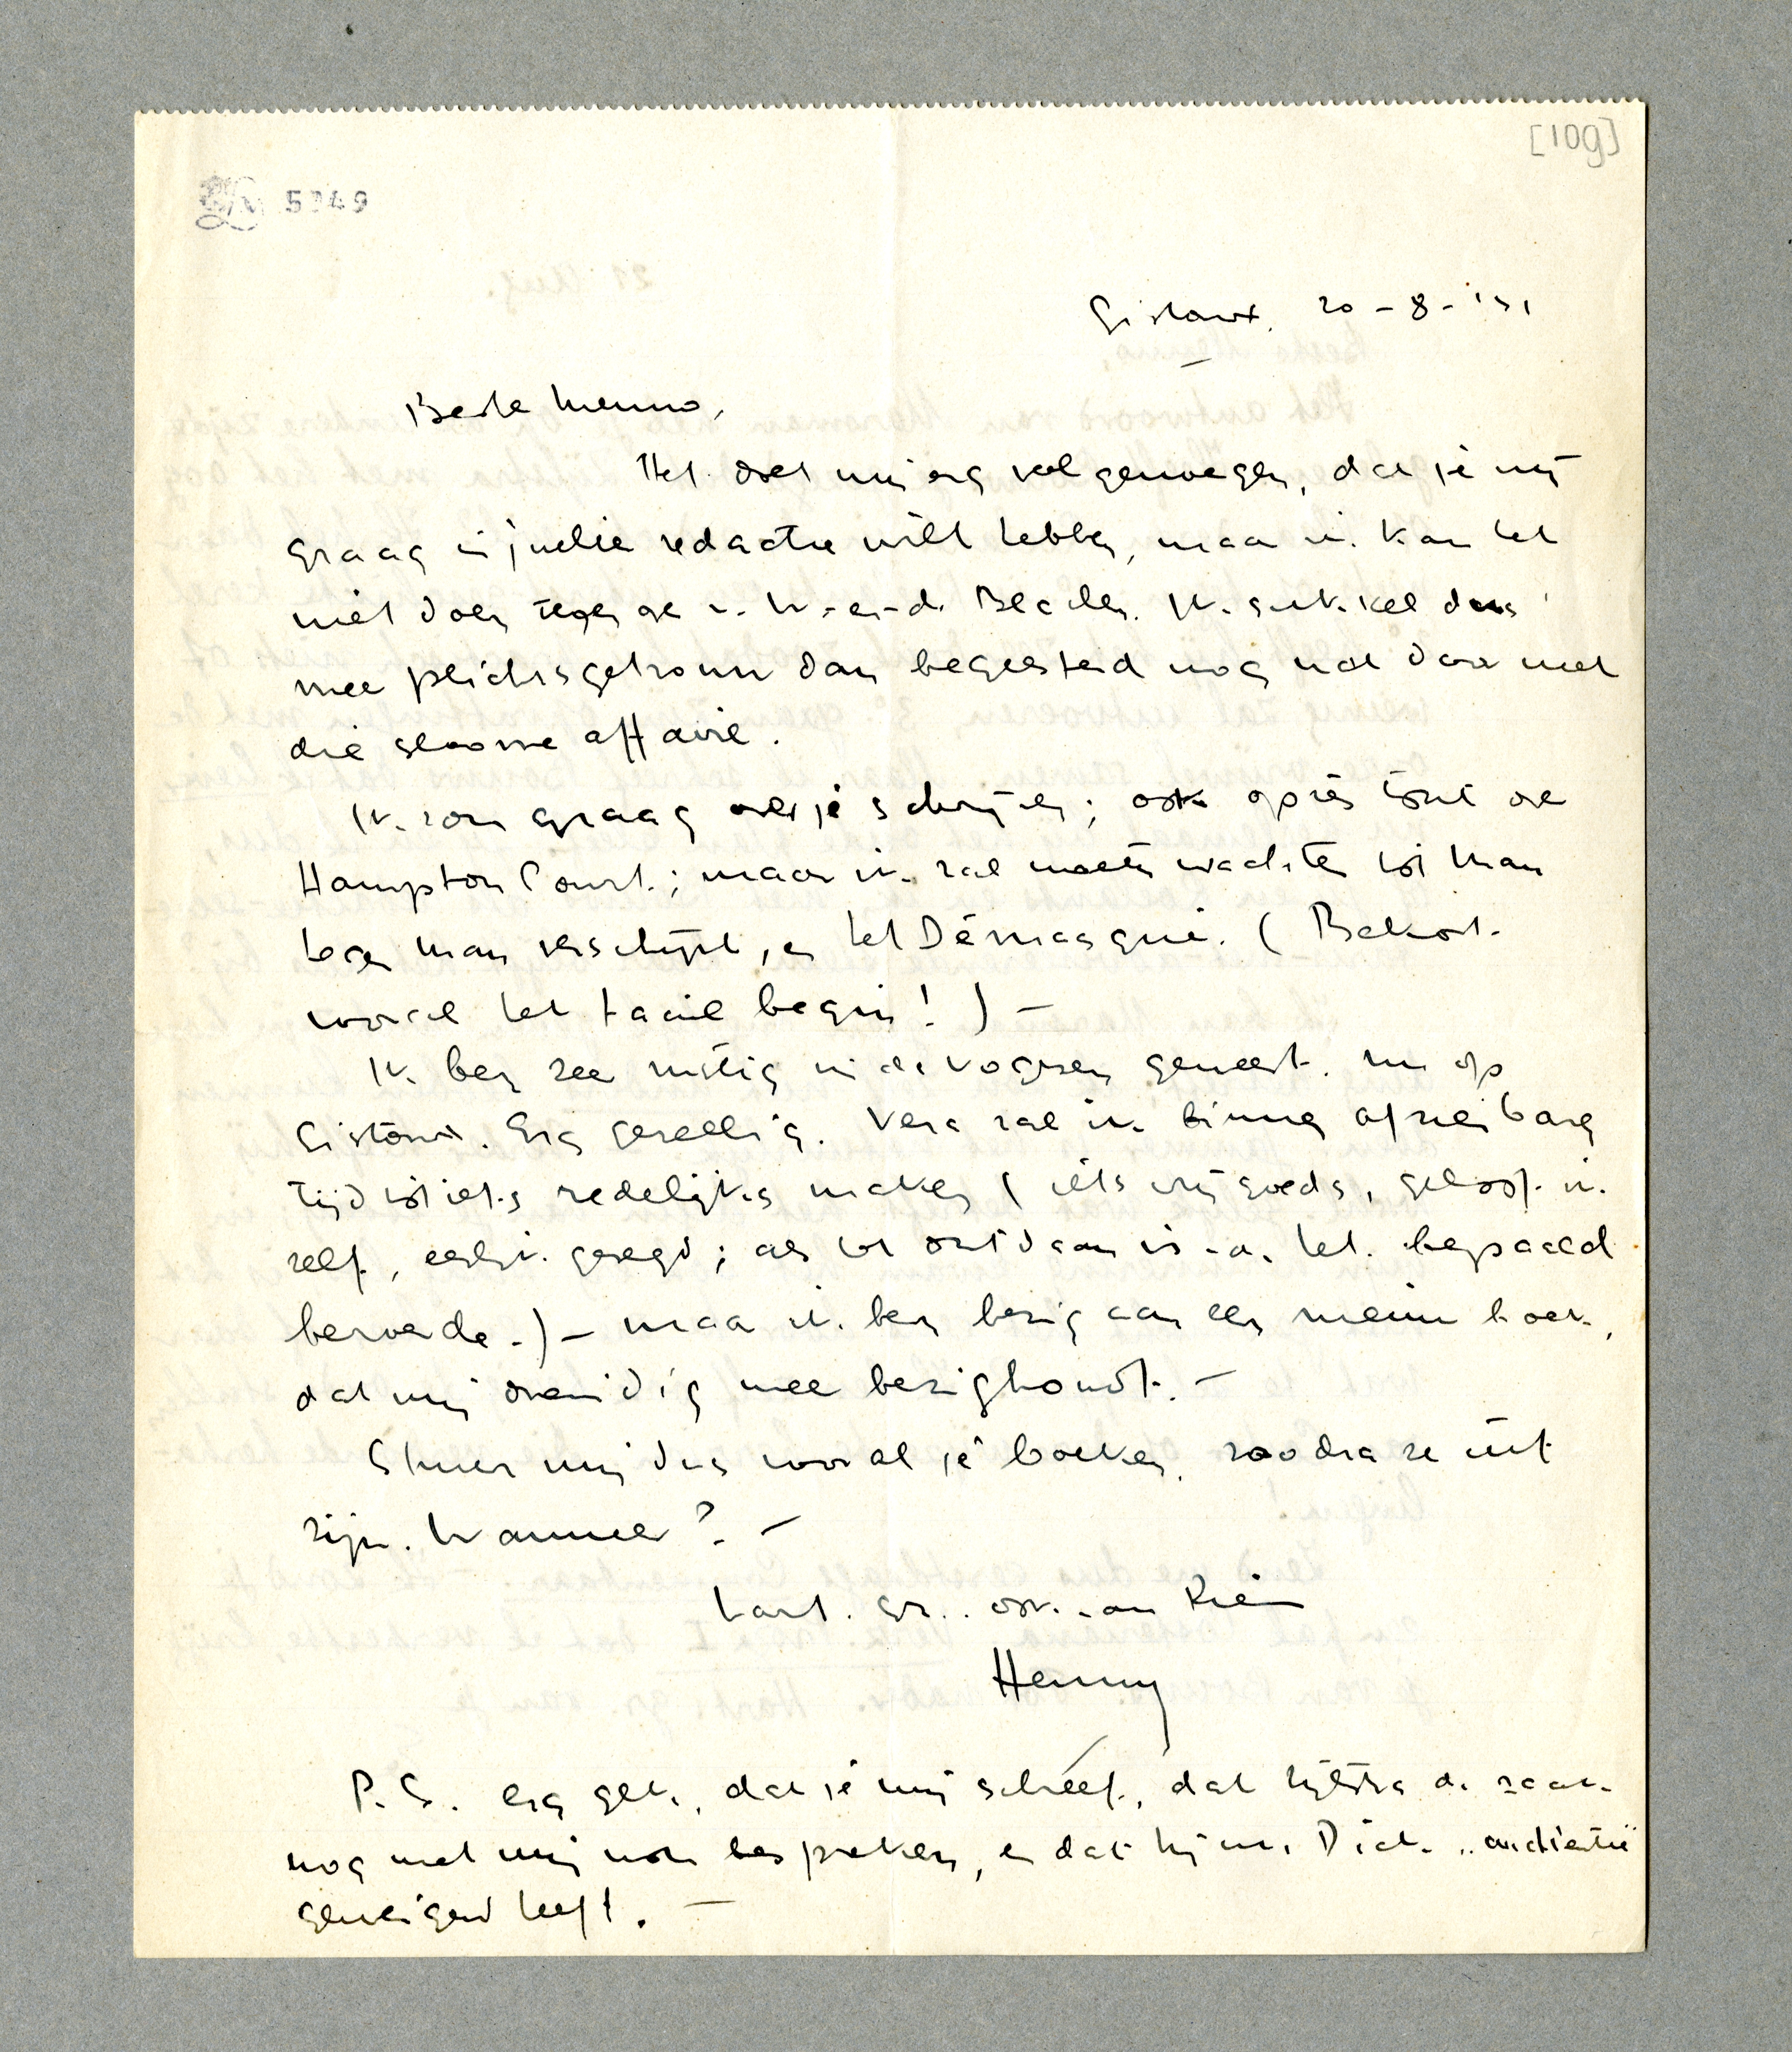 [109]
5249
Gistoux, 20-8-'31
Beste Menno,
Het doet mij erg veel genoegen, dat je mij
graag in jullie redactie wilt hebben, maar ik kan het
niet doen tegenover D. W. en de Bladen. Ik sukkel dus
meer plichtsgetrouw dan begeesterd nog wat door met
die sloome affaire.
Ik zou graag over je schrijven; ook après tout over
Hampton Court; maar ik zal moeten wachten tot Man
tegen Man verschijnt, en het Démasqué. (Bekort
vooral het taaie begin!) –
Ik ben zeer rustig in de Vogezen geweest, nu op
Gistoux. Erg gezellig. Vera zal ik binnen afzienbaren
tijd tot iets redelijks maken (iets vrij goeds, geloof ik
zelf, eerlijk gezegd; als tot ontdaan is van het bepaald
beroerde.) – maar ik ben bezig aan een nieuw boek,
dat mij overvloedig mee bezighoudt. –
Stuur mij dus vooral je boeken, zoodra ze uit
zijn. Wanneer? –
Hart. gr. ook van Rien
Henny
P.S. Erg gek, dat je mij schreef, dat Zijlstra de zaak
nog met mij wou bespreken, en dat hij nu Dick „audiëntie"
geweigerd heeft. –